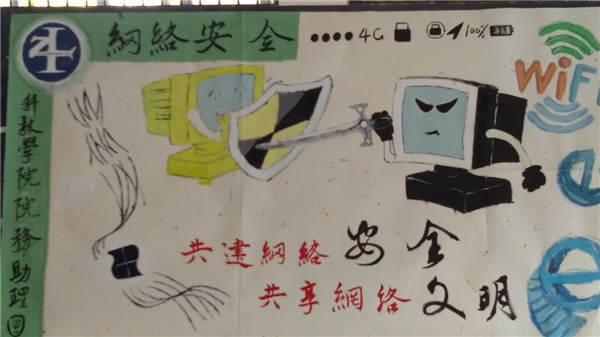 網絡安全 4G 100%
WiFi
科技學院院務助理團
共建網絡安全
共享網絡文明